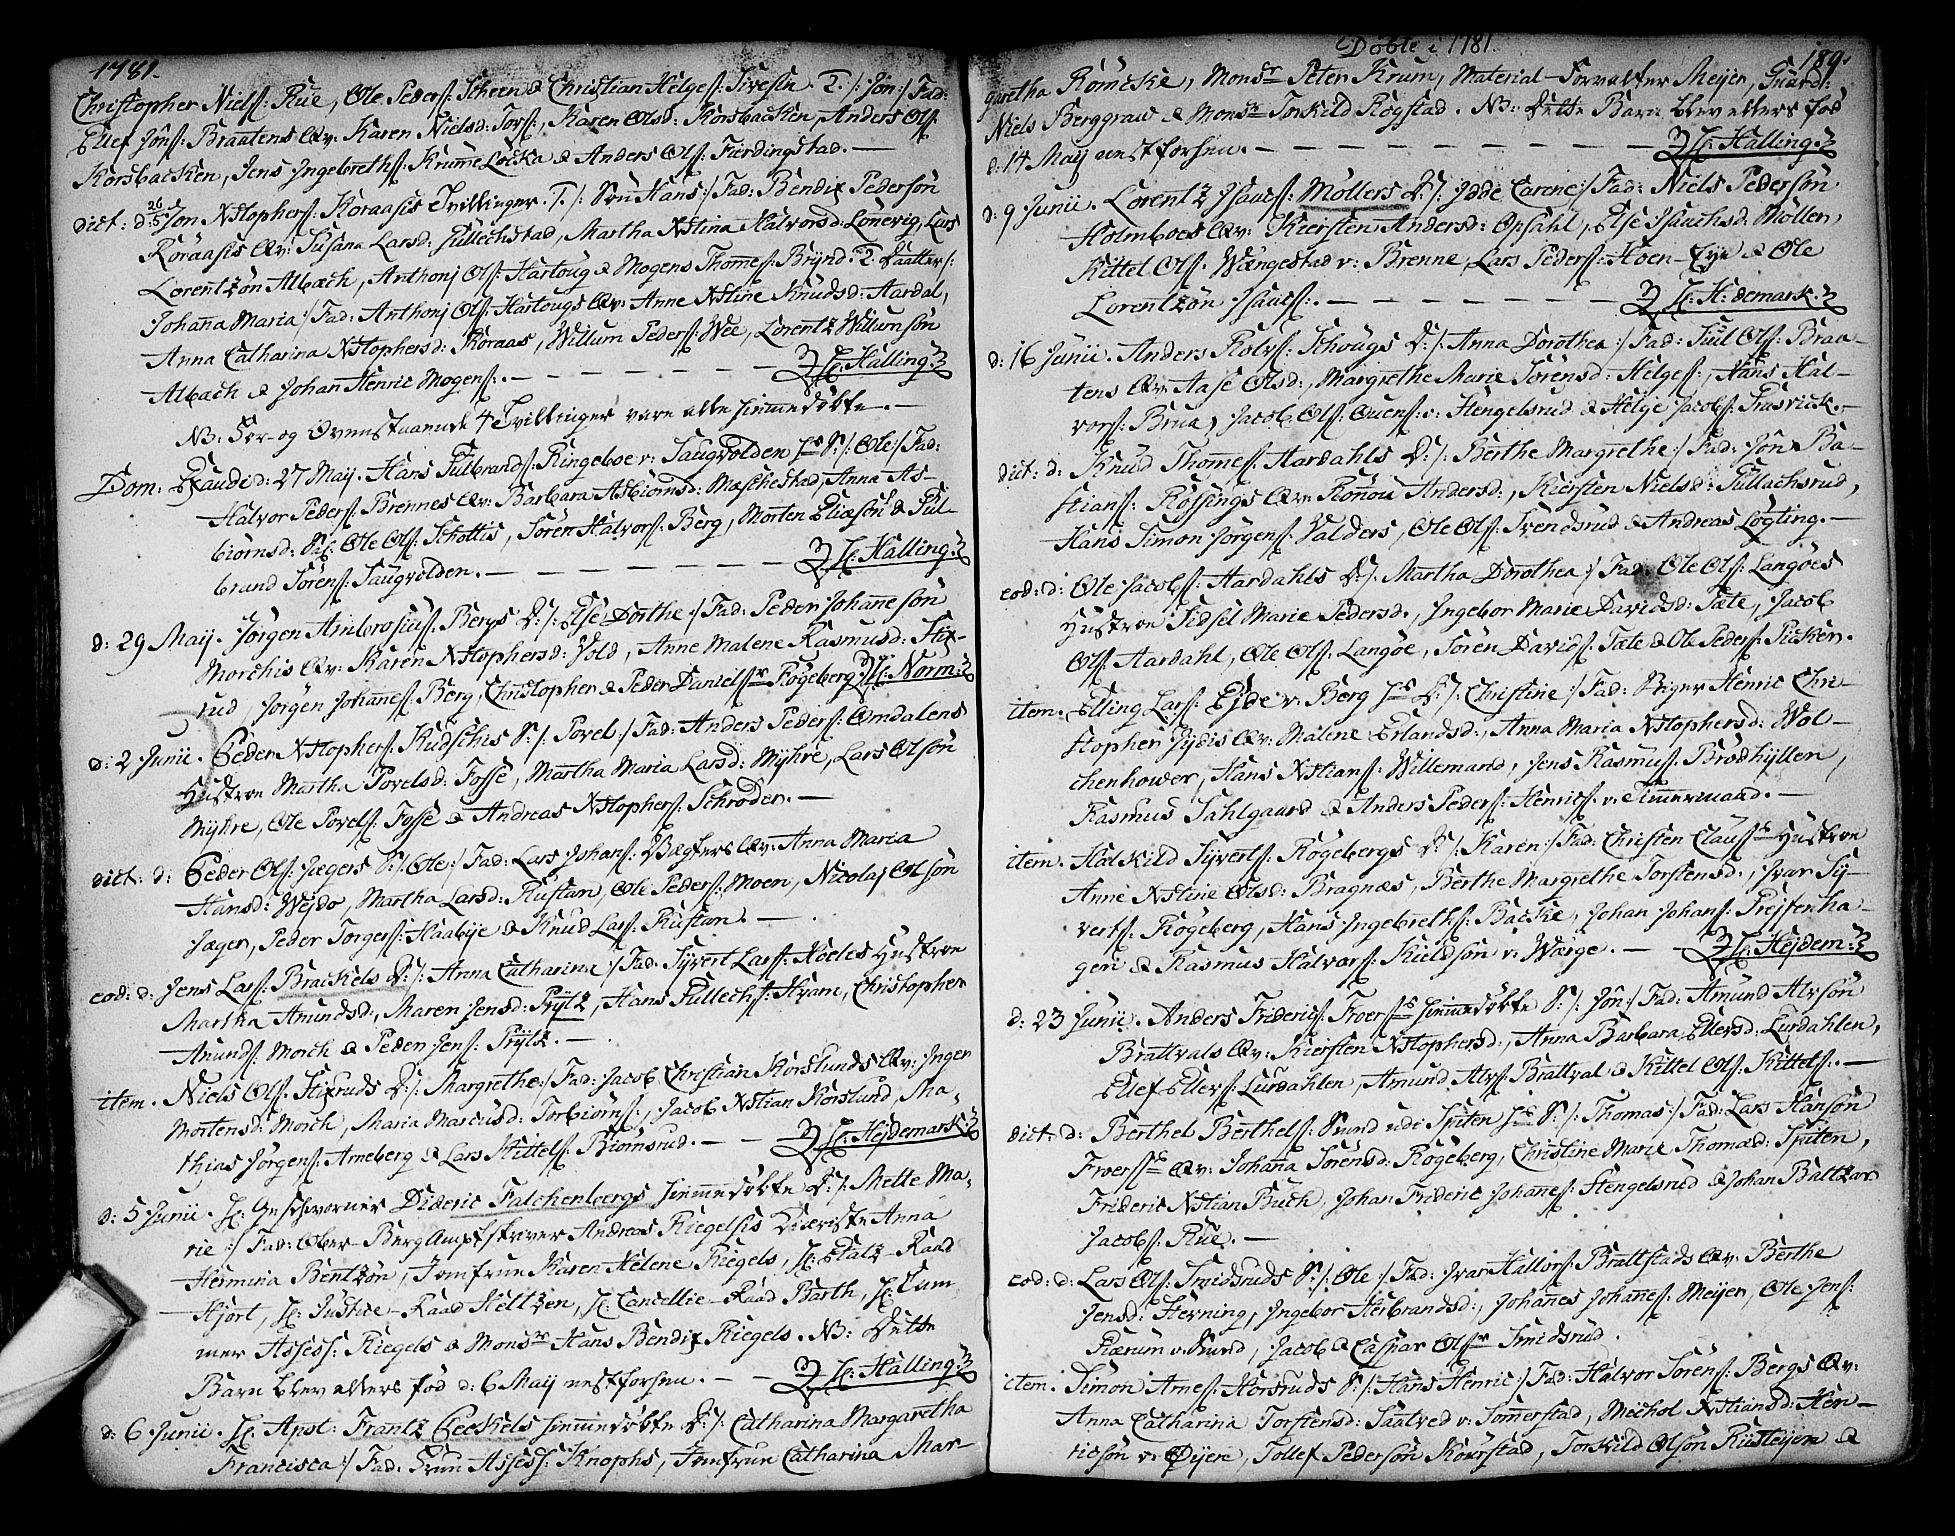 1781.
Christopher Niels∫: Rue, Ole Peders∫: Scheen & Christian Helges∫: Tveste. T. /: Jòn :/ Fad:
Ellef Jòns∫: Braatens Qv: Karen Nielsd: Tors∫:, Karen Olsd: Korsbacken, Anders Ols∫:
Korsbacken, Jens Ingebreths∫: Krumme Löcka & Anders Ols∫: Fierdingstad. —
dict: d: 26/5 Jon Xstophers∫: Koraasis Tvillinger. T. /: Sön Hans :/ Fad: Bendix Pedersön
Koraasis Qv: Susana Larsd: Tullechstad, Martha Xstina Halvorsd: Lonevig, Lars
Lorentzön Albach, Anthonj Ols∫: Hartoug & Mogens Thommes∫: Brÿnd. 2. Daatter /:
Johanna Maria :/ Fad: Anthonj Ols∫: Hartougs Qv: Anne Xstine Knudsd: Aardal,
Anna Catharina Xstophersd: Koraas, Willum Peders∫: Wee, Lorentz Willumsön
Albach & Johan Henric Mogens∫:. — — — — — — H: Halling.
NB: For- og Ovenstaaende 4 Tvillinger vare alle hiemmedöbte. —
Dom: Exaudi d: 27 Maij. Hans Gulbrands∫: Ringeboe v: Saugvolden S. /: Ole :/ Fad:
Halvor Peders∫: Brennes Qv: Barbara Asbiornsd: Mæchestad, Anna As-
biornsd: Ole Ols∫: Schottis, Sören Halvors∫: Berg, Morten Eliæsön & Gul-
brand Sörens∫: Saugvolden. — — — — — — H: Halling.
d: 29 Maij. Jörgen Ambrosius∫: Bergs D. /: Else Dorthe :/ Fad: Peder Johannesön
Morchis Qv: Karen Xstophersd: Vold, Anne Malene Rasmusd: Stif-
rud, Jörgen Johannes∫: Berg, Christopher & Peder Daniels∫r Rögeberg. H: Norm.
d: 2 Junii. Peder Xstophers∫: Kudschis S. /: Povel :/ Fad: Anders Peders∫: Omdalens
Hustroe Martha Povelsd: Fosse, Martha Maria Larsd: Mÿhre, Lars Olsön
Mÿhre, Ole Povels∫: Fosse & Andreas Xstophers∫: Schroder. —
dict: d: Peder Ols∫: Jægers S. /: Ole :/ Fad: Lars Johans∫: Vægters Qv: Anna Maria
Hansd: Wejdo, Martha Larsd: Rustan, Ole Peders∫: Moen, Nicolaj Olsön
Jæger, Peder Torgers∫: Haabÿe & Knud Lars∫: Rustan. —
eod: d: Jens Lars∫: Brackels D. /: Anna Catharina :/ Fad: Sÿvert Lars∫: Hoeles Hustroe
Martha Amundsd:, Maren Jensd: Prÿtz, Hans Tullechs∫: Hvam, Christopher
Anunds∫: Morch & Peder Jens∫: Prÿtz. —
item. Niels Ols∫: Stifruds D. /: Margrethe :/ Fad: Jacob Christian Korslunds Qv: Inger
Mortensd: Morch, Maria Marcusd: Torbiörns∫:, Jacob Xstian Korslund, Ma-
thias Jörgens∫: Arneberg & Lars Kittels∫: Biornsrud. — — H: Hejdemark.
d: 5 Junii. H: Geschworner Dideric Falchenbergs hiemmedöbte D. /: Mette Ma-
rie :/ Fad: Ober-Berg Amptskriver Andreas Riegelsis Kiæreste Anna
Hermina Bentzön, Jomfrue Karen Helene Riegels, H: Etatz-Raad
Hjort, H: Justice-Raad Heltzen, H: Cancellie-Raad Barth, H: Cam-
mer Assess∫: Riegels & Monsr Hans Bendix Riegels. NB: Dette
Barn blev ellers föd d: 6 Maij nestforhen. — — H: Halling.
d: 6 Junii. H: Apot: Frantz Ceckels hiemmedöbte D. /: Catharina Margaretha
Francisca :/ Fad: Frue Assess∫: Knophs, Jomfrue Catharina Mar-
Döbte i 1781.
189.
garetha Römcke, Monsr Peter Krum, Material-Forvalter Meijer, Guard:
Niels Berggraw & Monsr Torkild Rogstad. NB: Dette Barn blev ellers föd
d: 14 Maij nestforhen. — — — — — — — H: Halling.
d: 9 Junii. Lorentz Isacs∫: Möllers D. /: Jdde Carene :/ Fad: Niels Pedersön
Holmboes Qv: Kiersten Andersd: Opsahl, Else Isachsd: Möller,
Kittel Ols∫: Wængestad v: Brenne, Lars Peders∫: Hoen-Eÿe & Ole
Lorentzön Isacs∫:. — — — — — — H: H: demark.
d: 16 Junii. Anders Rolvs∫: Schougs D. /: Anna Dorothea :/ Fad: Juul Ols∫: Braa-
tens Qv: Aase Olsd:, Margrethe Marie Sörensd: Helges∫:, Hans Hal-
vors∫: Brua, Jacob Ols∫: Ouens∫: v: Hengelsrud & Helge Jacobs∫: Trusvick. —
dict: d: Knud Thommes∫: Aardahls D. /: Berthe Margrethe :/ Fad: Jön Ba-
stians∫: Rössings Qv: Ronnou Andersd:, Kiersten Nielsd: Tullachsrud,
Hans Simon Jörgens∫: Valders, Ole Ols∫: Svendsrud & Andreas Lögting. —
eod: d: Ole Jacobs∫: Aardahls D. /: Martha Dorothea :/ Fad: Ole Ols∫: Langöes
Hustroe Sidsel Marie Pedersd:, Ingebor Marie Davidsd: Tate, Jacob
Ols∫: Aardahl, Ole Ols∫: Langöe, Sören Davids∫: Tate & Ole Peders∫: Picken.
item. Elling Lars∫: Ejde v: Berg D. /: Christine :/ Fad: Birger Henric Chri-
stopher Jÿdis Qv: Malene Erlandsd:, Anna Maria Xstophersd: Wol-
chenhower, Hans Xstians∫: Willemand, Jens Rasmus∫: Brödhÿller,
Rasmus Dahlgaard & Anders Peders∫: Henrics∫: v: Timmermand. —
item. Halskild Sÿverts∫: Rögebergs D. /: Karen :/ Fad: Christen Claus∫: Hustroe
Anne Xstine Olsd: Bragnæs, Berthe Margrethe Torstensd:, Ivar Sÿ-
verts∫: Rögeberg, Hans Ingebreths∫: Backe, Johan Johans∫: Prejfenha-
gen & Rasmus Halvors∫: Kieldsön v: Wærge. — — H: Hejdem:
d: 23 Junii. Anders Frideric∫: Froers∫: hiemmedöbte S. /: Jön :/ Fad: Amund Alvsön
Brattvals Qv: Kiersten Xstophersd:, Anna Barbara Ellevsd: Lurdahlen,
Ellef Ellevs∫: Lurdahlen, Amund Alvs∫: Brattval & Kittel Ols∫: Kittels∫:. —
dict: d: Berthel Berthels∫: Sund udi Spiten S. /: Thomas :/ Fad: Lars Hansön
Froers∫: Qv: Johanna Sörensd: Rögeberg, Christine Marie Thomæd: Spiten,
Frideric Xstian Buch, Johan Frideric Johannes∫: Hengelsrud & Johan Baltzar
Jacobs∫: Rue. —
eod: d: Lars Ols∫: Smidsruds S. /: Ole :/ Fad: Ivar Hallvors∫: Brattstads Qv: Berthe
Jensd: Herning, Ingebor Herbrandsd:, Johannes Johannes∫: Meijer, Ole Jens∫:
Rærum v: Sund, Jacob & Caspar Ols∫r Smidsrud.
item. Simon Arnes∫: Horsruds S. /: Hans Henric :/ Fad: Halvor Sörens∫: Bergs Qv:
Anna Catharina Torstensd: Saatved v: Sommerstad, Mechol Xstiansd: Hen-
ricsön v: Öijere, Tollef Pedersön Kovrstad, Torkild Olsön Rusteijere &